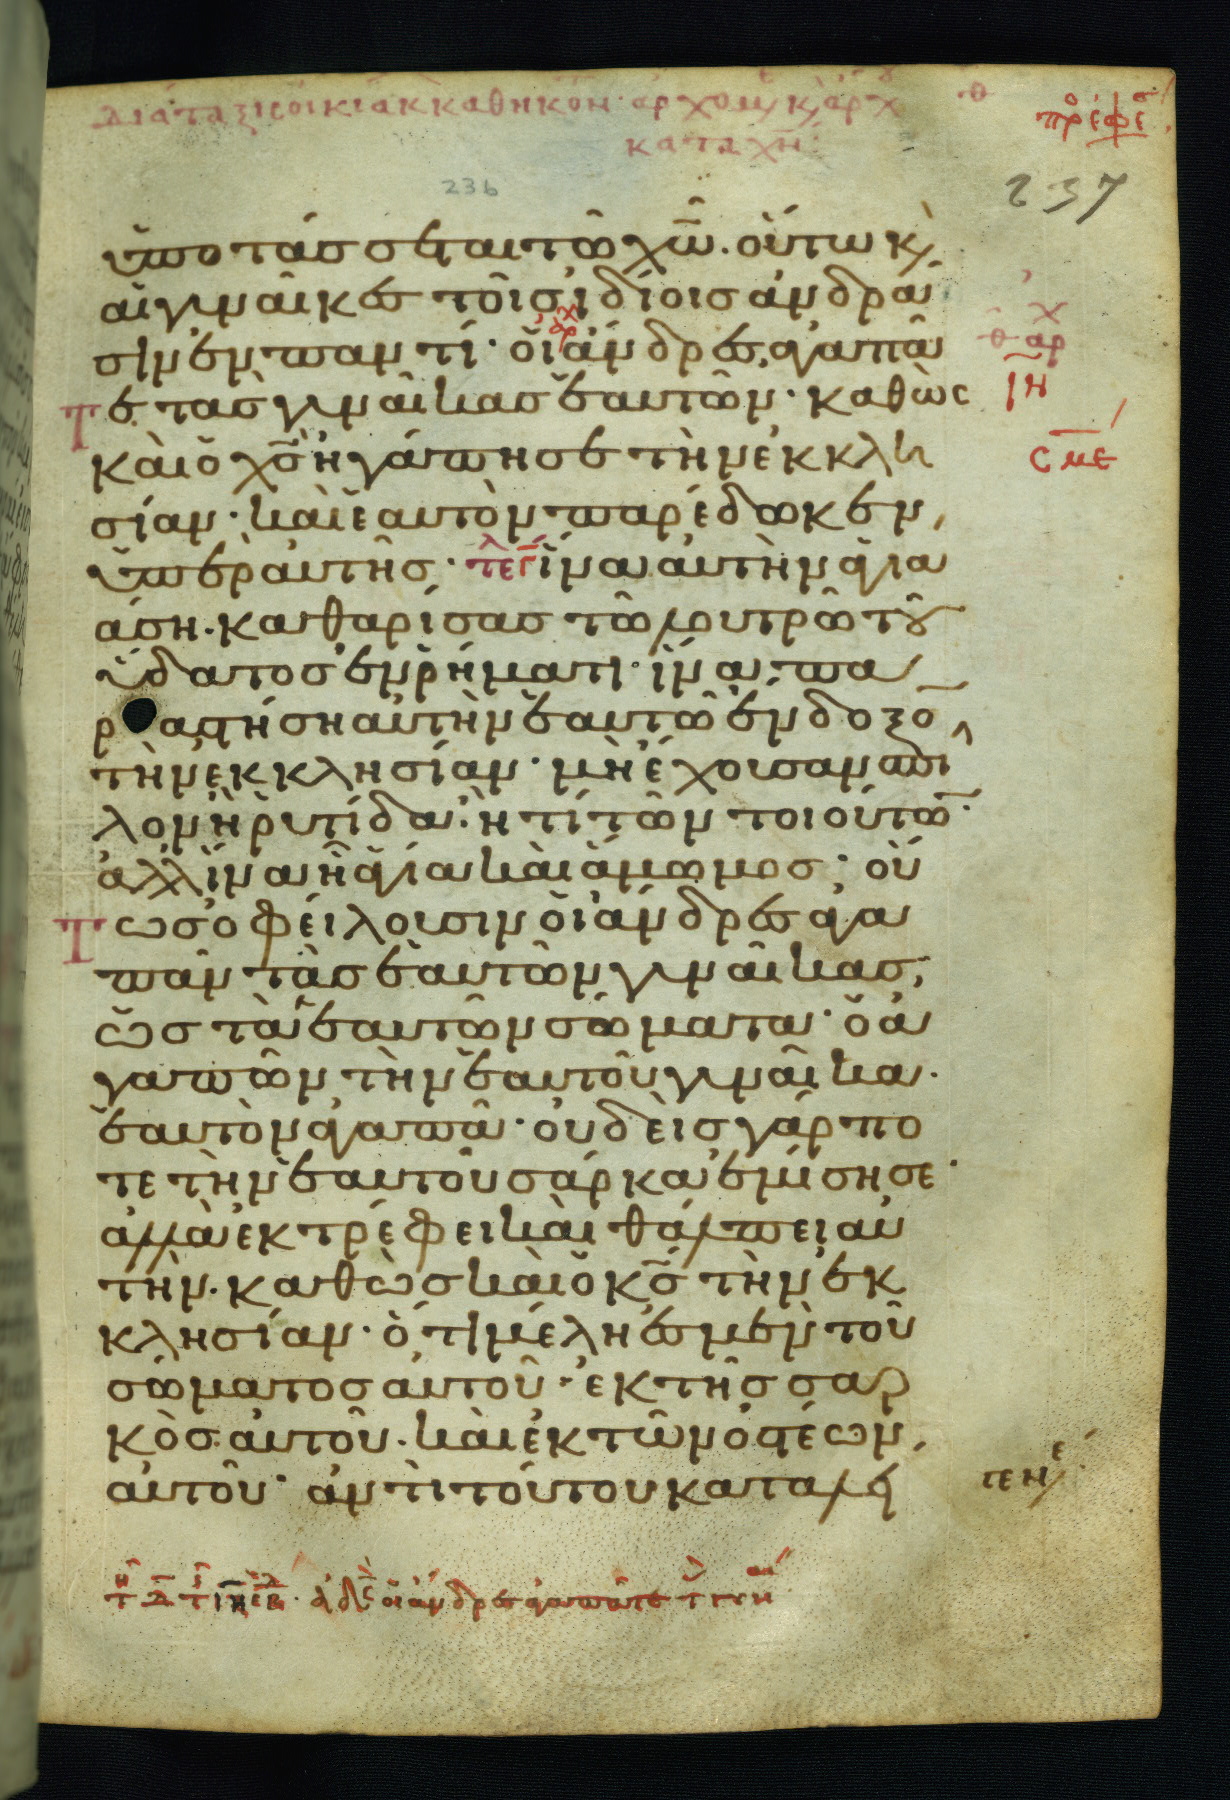 διάταξις οἰκιακ καθηκόν· ἀρχομ κ ἀρχ
κατα χν
πρ εφε
236
237
ὑποτάσσεται τῶ χῶ. οὕτω κ
αἱ γυναῖκες τοῖς ἰδίοις ἀνδρά
σιν ἐν παντί· οἱ ἄνδρες, ἀγαπᾶ
τε τὰς γυναῖκας ἑαυτῶν· καθὼς
καὶ ὁ χς ἠγάπησε τὴν ἐκκλη
σίαν· καὶ ἑαυτὸν παρέδωκεν,
ὑπὲρ αὐτῆς· τε ἵνα αὐτὴν ἁγι
άση· καθαρίσας τῶ λουτρῶ τοῦ
ὕδατος ἐν ῥήματι· ἵνα πα
ραστήση αὐτὴν ἑαυτῶ ἔνδοξο
τὴν ἐκκλησίαν· μὴ ἔχουσαν σπῖ
λον ἢ ῥυτίδα· ἤ τι τῶν τοιούτω·
ἀλλ ἵνα ἦ ἁγία καὶ ἄμωμος· οὕ
τως ὀφείλουσιν οἱ ἄνδρες ἀγα
πᾶν τὰς ἑαυτῶν γυναῖκας,
ὡς τὰ ἑαυτῶν σώματα· ὁ ἀ
γαπῶν τὴν ἑαυτοῦ γυναῖκα·
ἑαυτὸν ἀγαπᾶ· οὐδεὶς γάρ πο
τε τὴν ἑαυτοῦ σάρκα ἐμίσησε·
ἀλλὰ ἐκτρέφει καὶ θάλπει αὐ
τὴν· καθὼς καὶ ὁ κς τὴν ἐκ
κλησίαν· ὅτι μέλη ἐσμὲν τοῦ
σώματος αὐτοῦ· ἐκ τῆς σαρ
κὸς αὐτοῦ· καὶ ἐκ τῶν ὀστέων,
αὐτοῦ· ἀντὶ τούτου καταλε
αρχ
ιη
σμε
τεν
ἀδε οἱ ἄνδρες ἀγαπᾶτε τ γυν